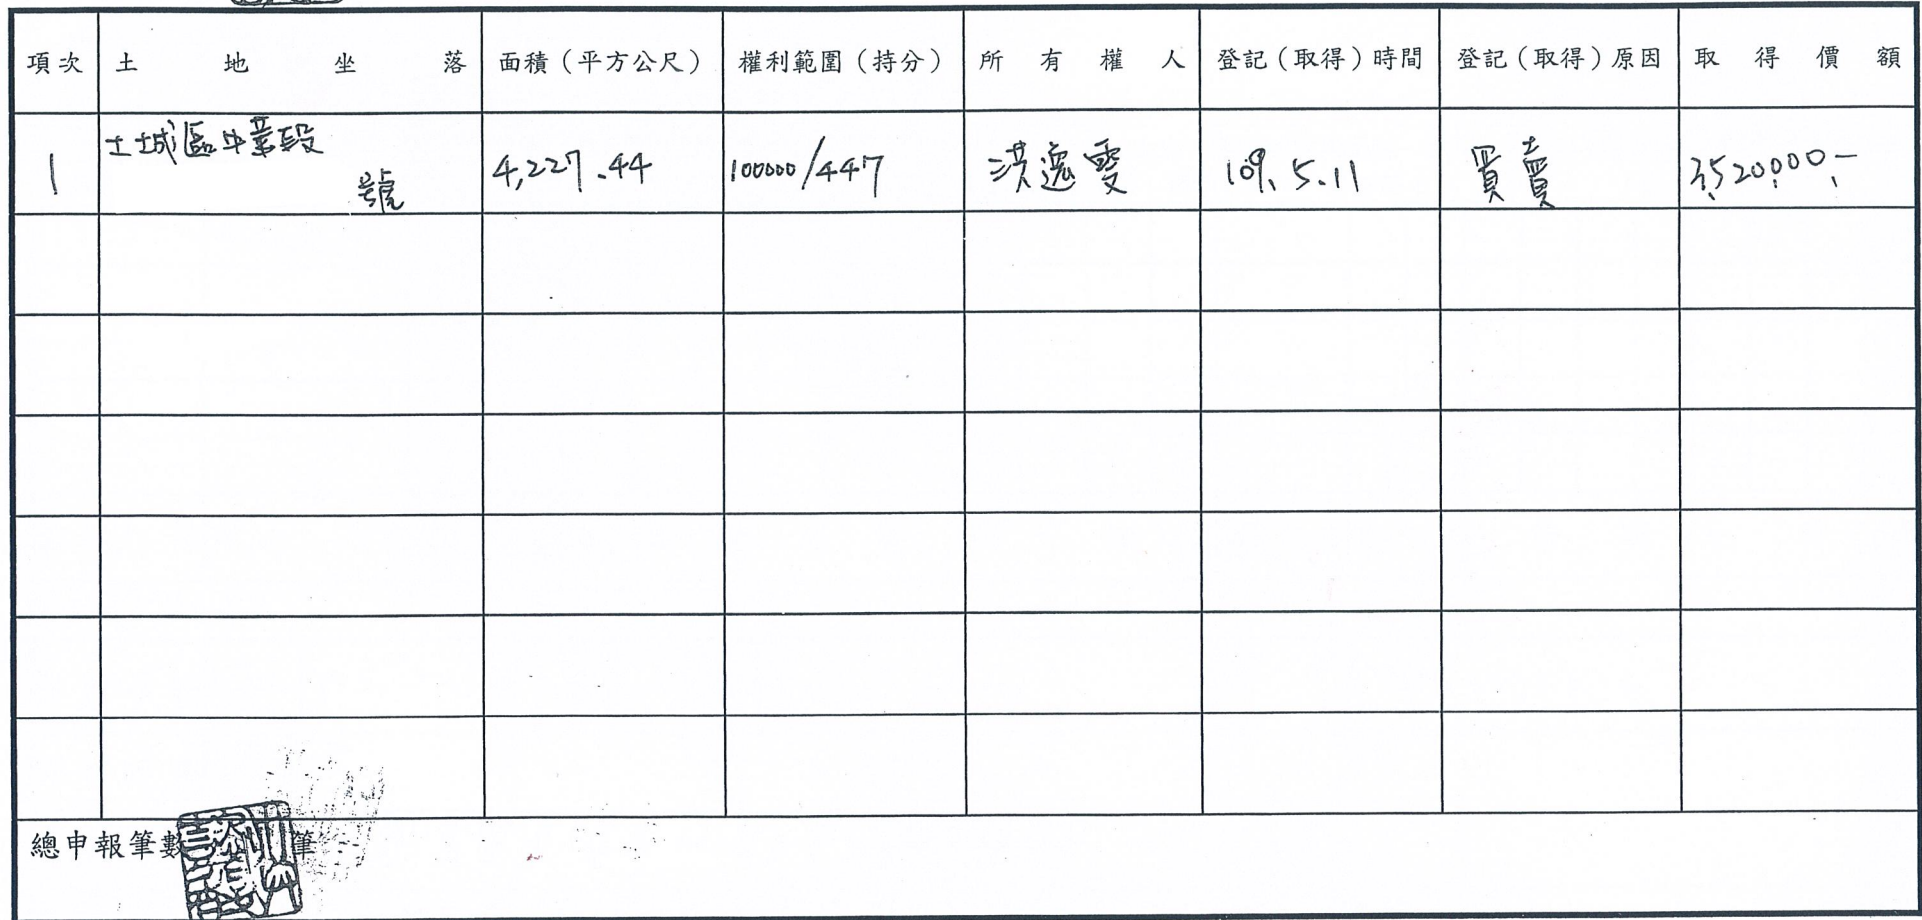 項次 土地坐落 面積（平方公尺） 權利範圍（持分） 所有權人 登記（取得）時間 登記（取得）原因 取得價額
土城區中華段
1 號 4,227.44 100000/447 洪逸雯 109.5.11 買賣 3,520,000.-
總申報筆數 筆